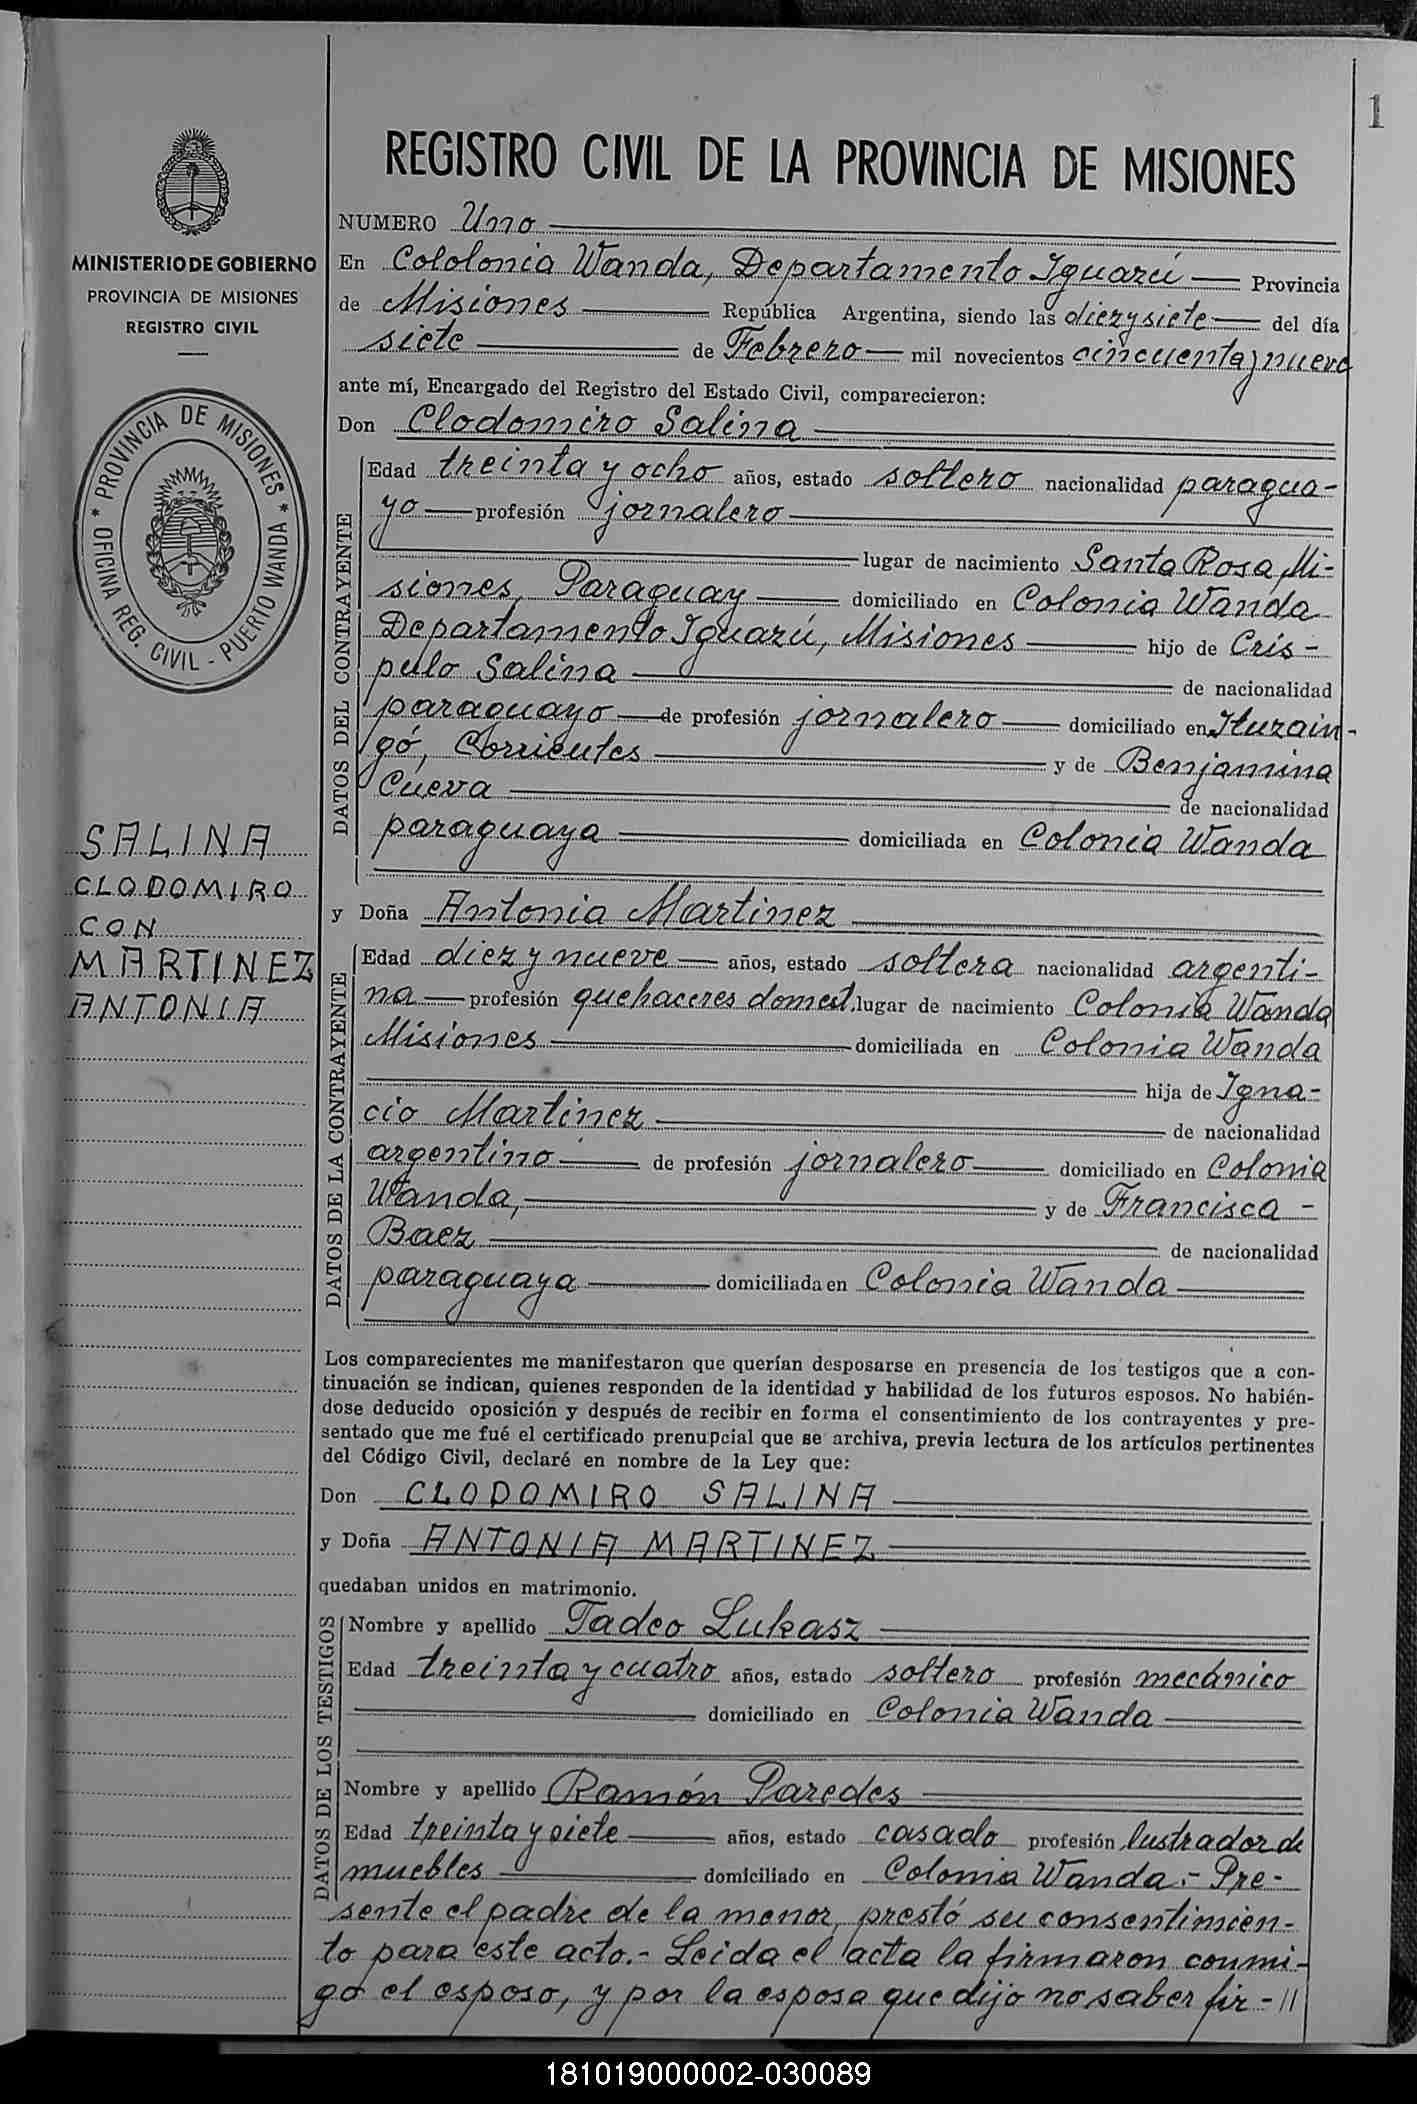 1
REGISTRO CIVIL DE LA PROVINCIA DE MISIONES
MINISTERIO DE GOBIERNO
PROVINCIA DE MISIONES
REGISTRO CIVIL
* PROVINCIA DE MISIONES *
OFICINA REG. CIVIL - PUERTO WANDA
SALINA
CLODOMIRO
CON
MARTINEZ
ANTONIA
NUMERO Uno
En Cololonia Wanda, Departamento Iguazú Provincia
de Misiones República Argentina, siendo las diez y siete del día
siete de Febrero mil novecientos cincuenta y nueve
ante mí, Encargado del Registro del Estado Civil, comparecieron:
Don Clodomiro Salina
DATOS DEL CONTRAYENTE
Edad treinta y ocho años, estado soltero nacionalidad paragua-
yo profesión jornalero
lugar de nacimiento Santa Rosa, Mi-
siones, Paraguay domiciliado en Colonia Wanda
Departamento Iguazú, Misiones hijo de Cris-
pulo Salina de nacionalidad
paraguayo de profesión jornalero domiciliado en Ituzain-
gó, Corrientes y de Benjamina
Cueva de nacionalidad
paraguaya domiciliada en Colonia Wanda
y Doña Antonia Martinez
DATOS DE LA CONTRAYENTE
Edad diez y nueve años, estado soltera nacionalidad argenti-
na profesión quehaceres domest. lugar de nacimiento Colonia Wanda
Misiones domiciliada en Colonia Wanda
hija de Igna-
cio Martinez de nacionalidad
argentino de profesión jornalero domiciliado en Colonia
Wanda, y de Francisca -
Baez de nacionalidad
paraguaya domiciliada en Colonia Wanda
Los comparecientes me manifestaron que querían desposarse en presencia de los testigos que a con-
tinuación se indican, quienes responden de la identidad y habilidad de los futuros esposos. No habién-
dose deducido oposición y después de recibir en forma el consentimiento de los contrayentes y pre-
sentado que me fué el certificado prenupcial que se archiva, previa lectura de los artículos pertinentes
del Código Civil, declaré en nombre de la Ley que:
Don CLODOMIRO SALINA
y Doña ANTONIA MARTINEZ
quedaban unidos en matrimonio.
DATOS DE LOS TESTIGOS
Nombre y apellido Tadeo Lukasz
Edad treinta y cuatro años, estado soltero profesión mecánico
domiciliado en Colonia Wanda
Nombre y apellido Ramón Paredes
Edad treinta y siete años, estado casado profesión lustrador de
muebles domiciliado en Colonia Wanda.- Pre-
sente el padre de la menor, prestó su consentimien-
to para este acto.- Leida el acta la firmaron conmi-
go el esposo, y por la esposa que dijo no saber fir-//
181019000002-030089